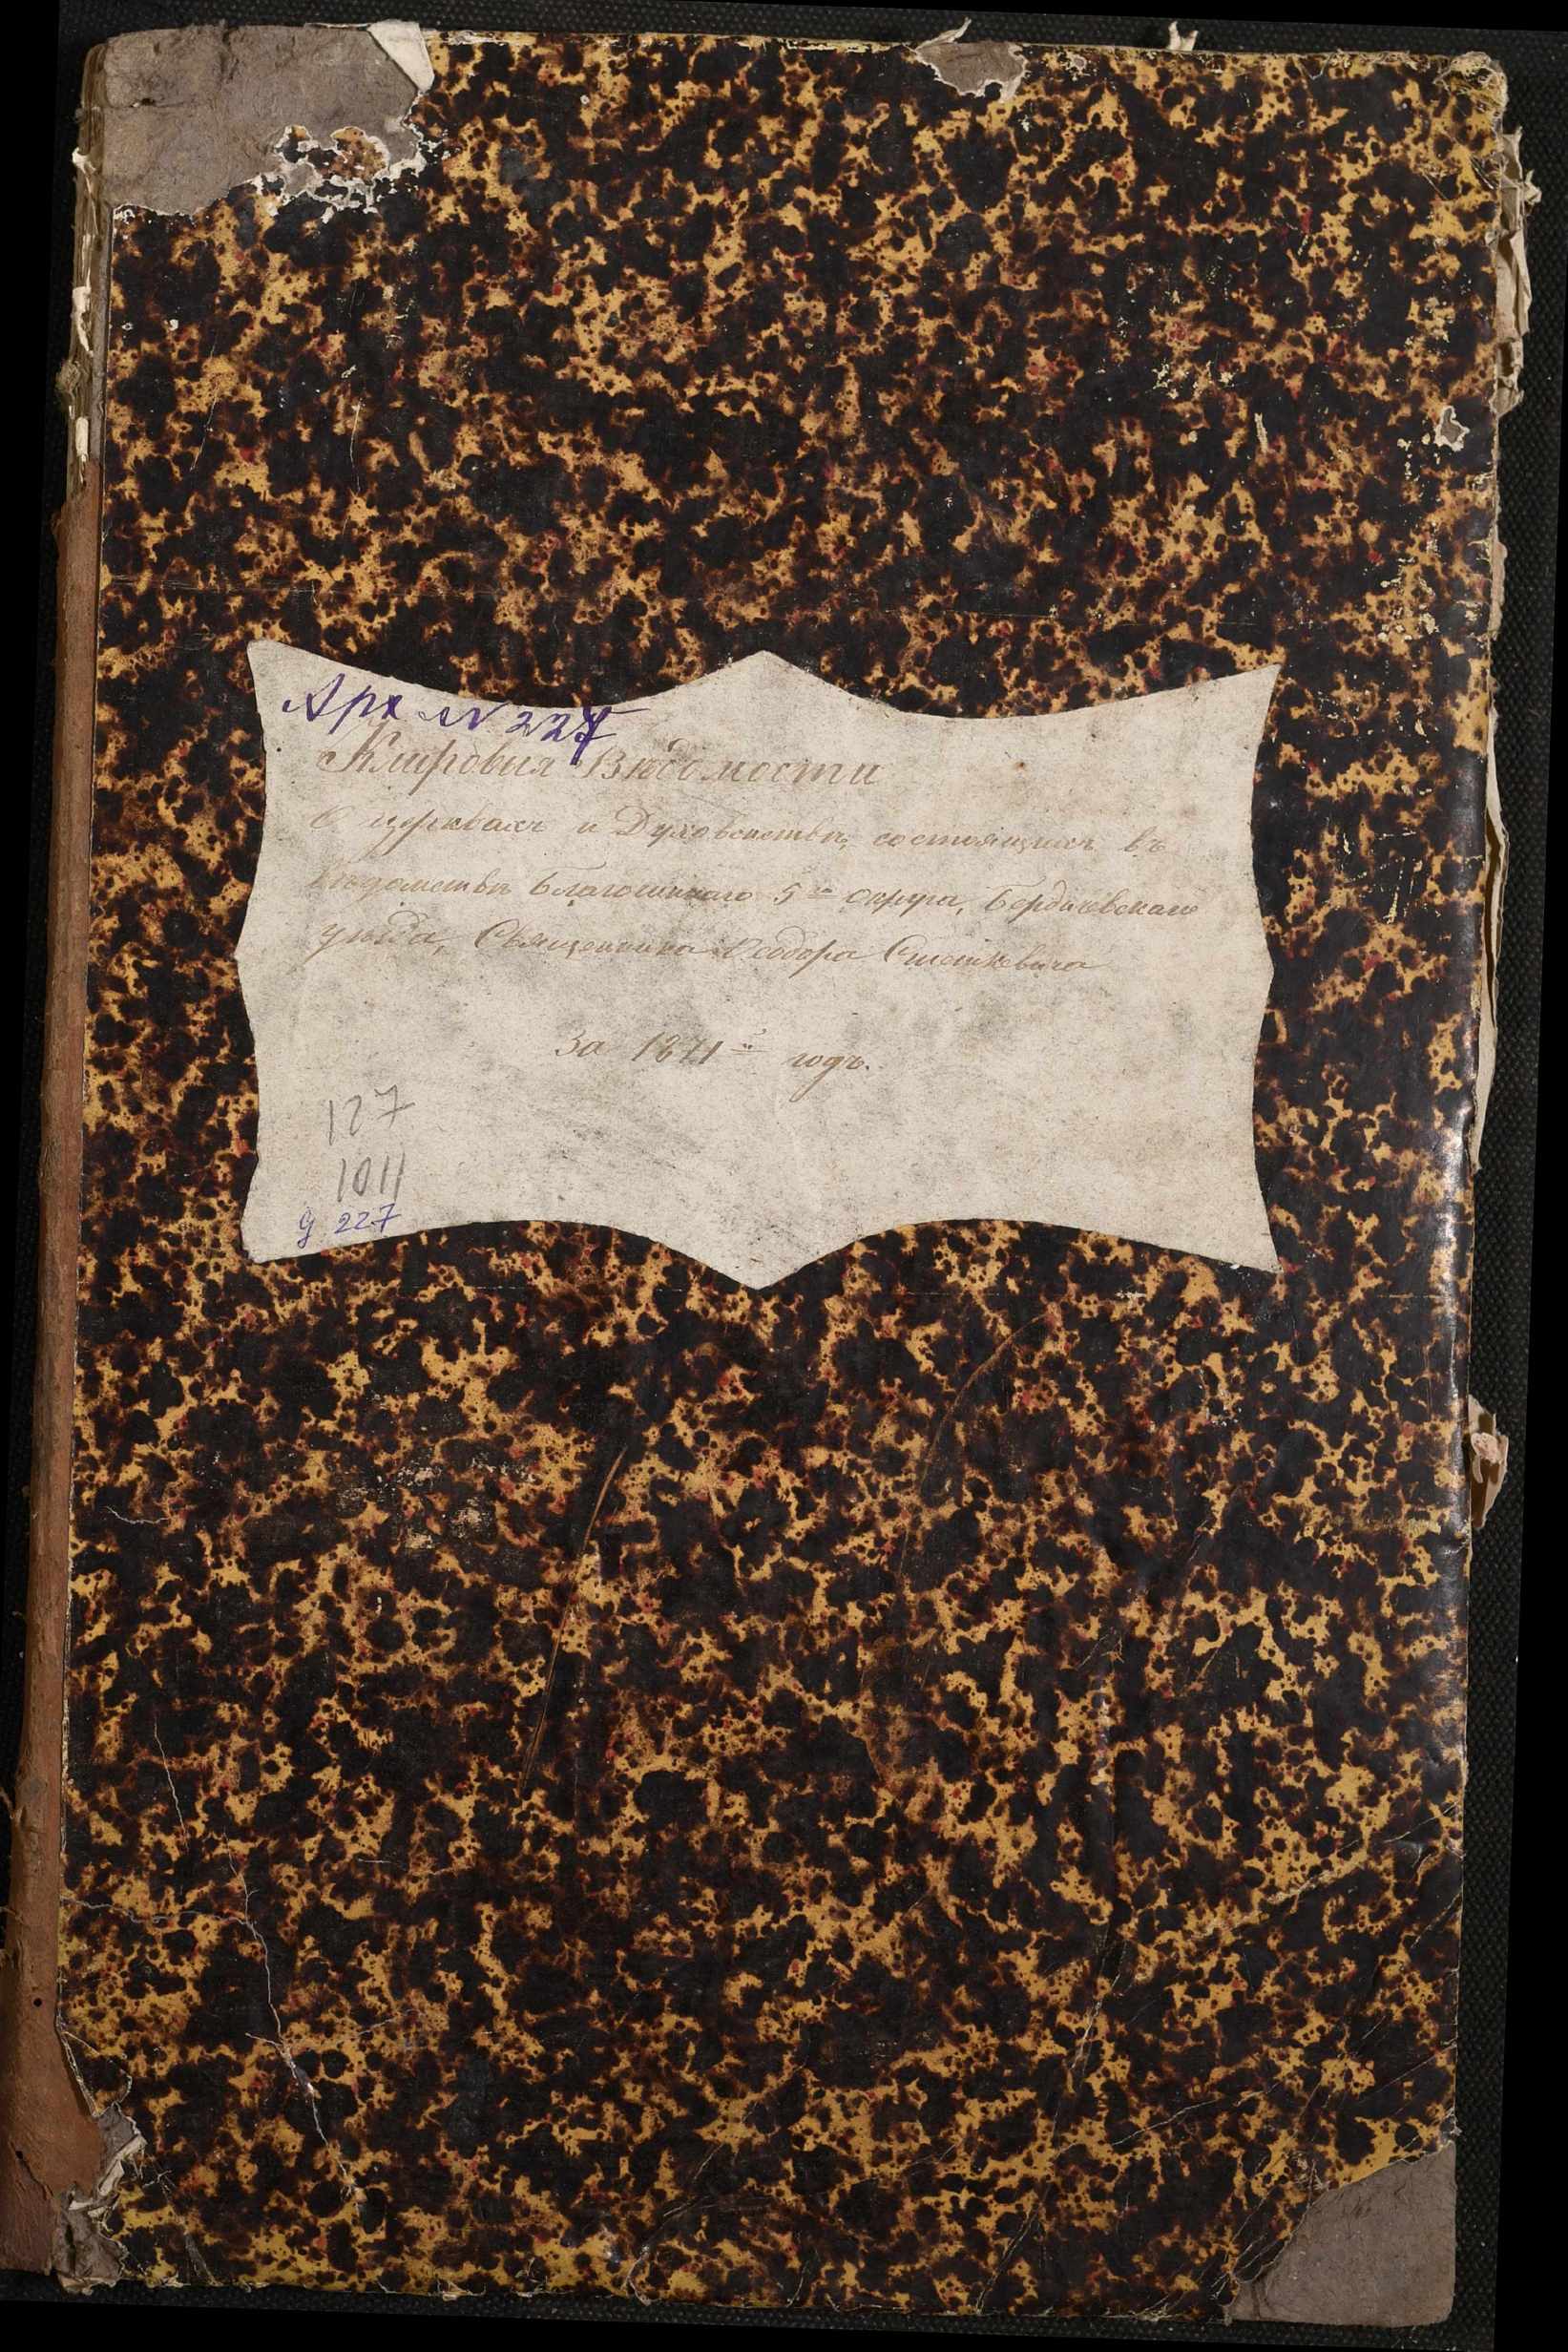 Арх №227
Клировыя Вѣдомости
О церквахъ и Духовенствѣ, состоящихъ въ
вѣдомствѣ Благочиннаго 5го округа, Бердичевскаго
уѣзда, Священника Ѳеодора
За 1871й годъ.
127
1011
д 227